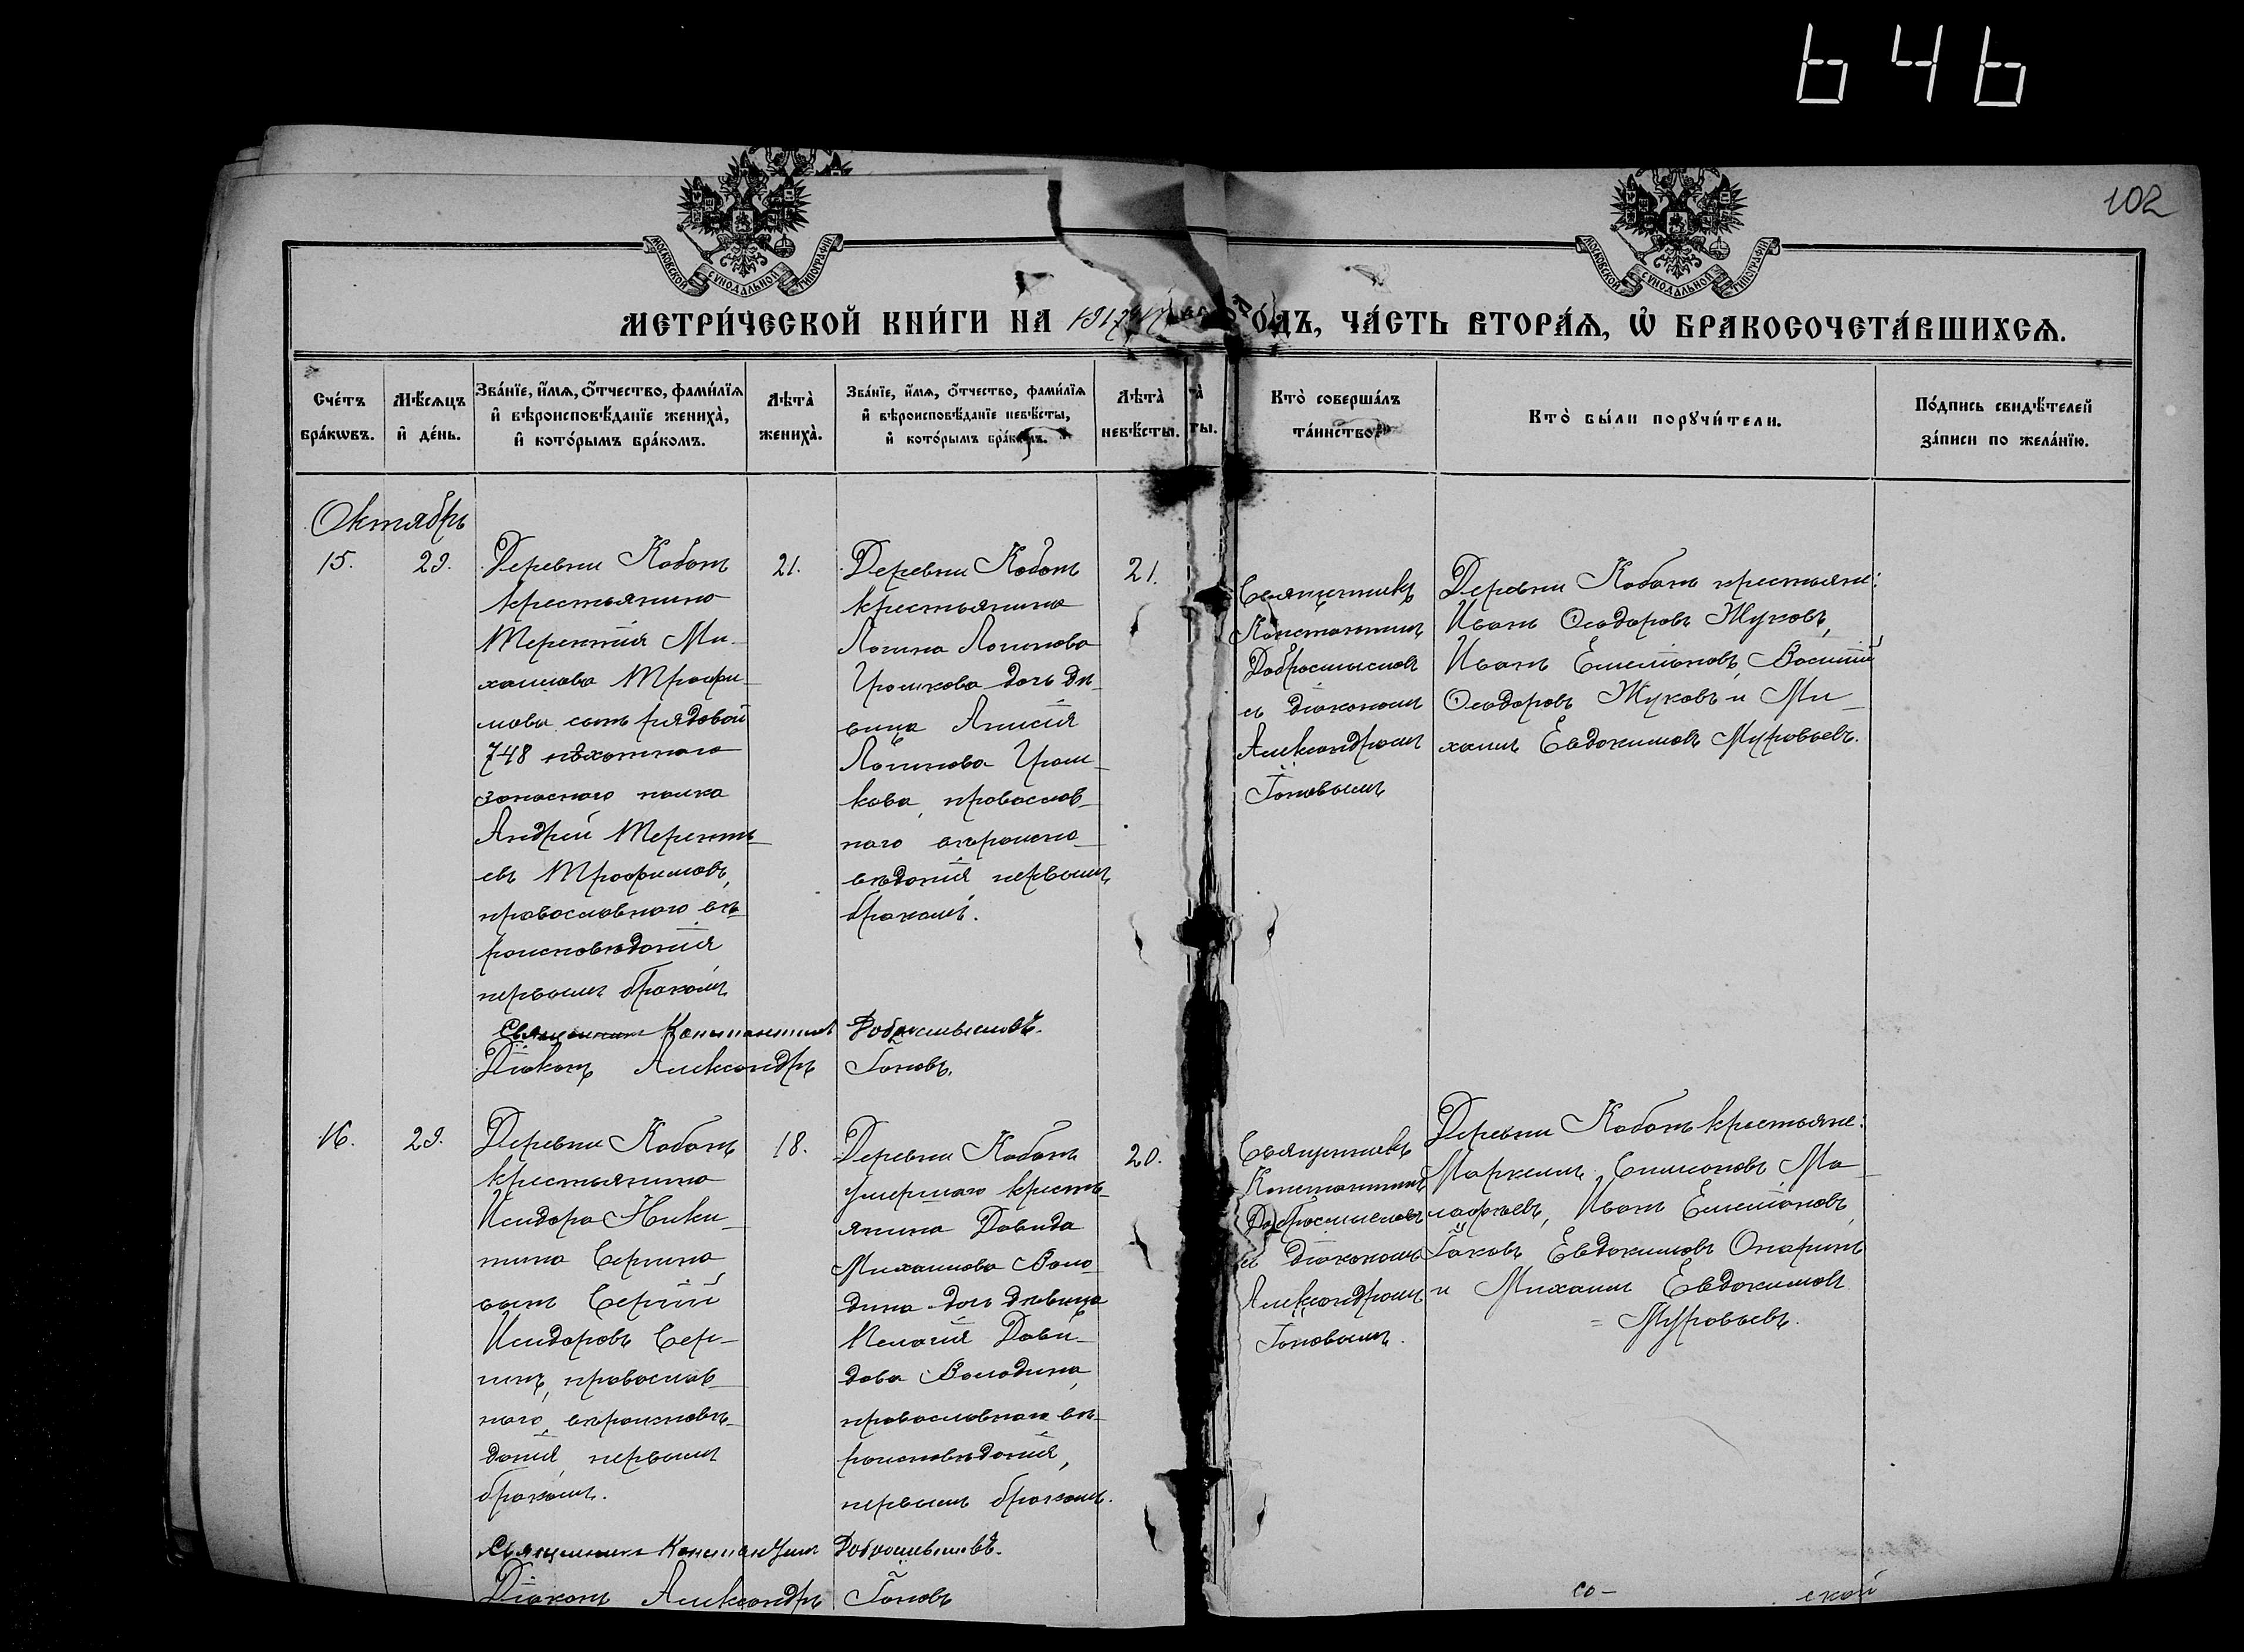 646
102
МОСКОВСКОЙ СѴНОДАЛЬНОЙ ТИПОГРАФІИ
МОСКОВСКОЙ СѴНОДАЛЬНОЙ ТИПОГРАФІИ
МЕТРИ́ЧЕСКОЙ КНИ́ГИ НА 1917 ГО́ДЪ, ЧА́СТЬ ВТОРА́Ѧ, Ѡ҆ БРАКОСОЧЕТА́ВШИХСѦ.
Сче́тъ
бра́кѡвъ.
Мѣ́сѧцъ
и҆ де́нь.
Зва́нїе, и҆́мѧ, ѻ҆́тчество, фами́лїѧ
и҆ вѣроисповѣ́данїе жениха̀,
и҆ кото́рымъ бра́комъ.
Лѣта̀
жениха̀.
Зва́нїе, и҆́мѧ, ѻ҆́тчество, фами́лїѧ
и҆ вѣроисповѣ́данїе невѣ́сты,
и҆ кото́рымъ бра́комъ.
Лѣта̀
невѣ́сты.
та̀
ты.
Кто̀ соверша́лъ
та́инство.
Кто̀ бы́ли порꙋчи́тели.
По́дпись свидѣ́телей
за́писи по жела́нїю.
Октябрь
15.
29.
Деревни Кабанъ
крестьянина
Терентія Ми-
хаилова Трофи-
мова сынъ рядовой
748 пѣхотнаго
запаснаго полка
Андрей Теренть-
евъ Трофимовъ,
православнаго вѣ-
роисповѣданія
первымъ бракомъ
21.
Деревни Кабанъ
крестьянина
Логина Логинова
Громкова дочь дѣ-
вица Анисія
Логинова Гром-
кова, православ-
наго вѣроиспо-
вѣданія первымъ
бракомъ.
21.
Священникъ
Константинъ
Добросмысловъ
съ діакономъ
Александромъ
Іоновымъ
Деревни Кабанъ крестьяне:
Иванъ Ѳеодоровъ Жуковъ,
Иванъ Емеліановъ, Василій
Ѳеодоровъ Жуковъ и Ми-
хаилъ Евдокимовъ Муравьевъ.
Священникъ Константинъ Добросмысловъ.
Діаконъ Александръ Іоновъ.
16.
29.
Деревни Кабанъ
крестьянина
Исидора Ники-
тина Сергина
сынъ Сергій
Исидоровъ Сер-
гинъ, православ-
наго вѣроисповѣ-
данія, первымъ
бракомъ.
18.
Деревни Кабанъ
умершаго кресть-
янина Давида
Михаилова Воло-
дина дочь дѣвица
Пелагія Дави-
дова Володина,
православнаго вѣ-
роисповѣданія,
первымъ бракомъ.
20.
Священникъ
Константинъ
Добросмысловъ
съ діакономъ
Александромъ
Іоновымъ.
Деревни Кабанъ крестьяне:
Маркеллъ Симоновъ Ма-
лафѣевъ, Иванъ Емеліановъ,
Іаковъ Евдокимовъ Опаринъ
и Михаилъ Евдокимовъ
Муравьевъ.
Священникъ Константинъ Добросмысловъ.
Діаконъ Александръ Іоновъ
со-
ской